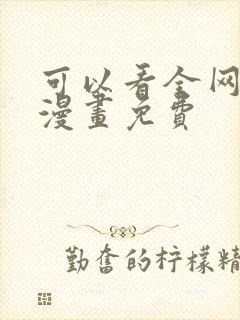 可以看全网
漫畫免費
勤奮的柠檬精